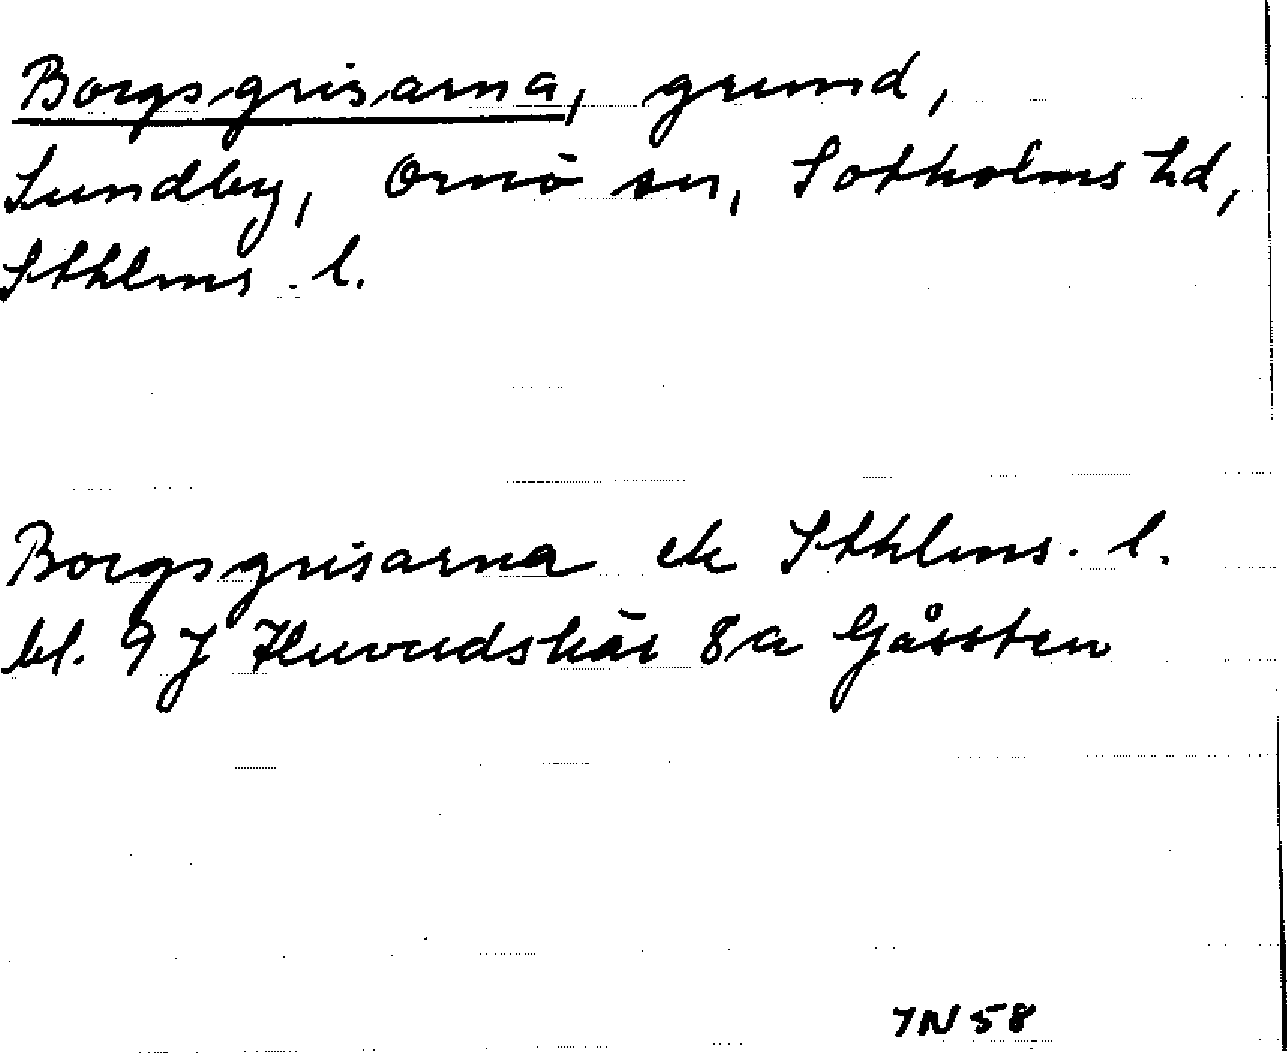 Borgsgrisarna, grund,
Sundby, Ornö sn, Sotholms hd,
Sthlms. l.
Borgsgrisarna ek Sthlms. l.
bl. 9 J Huvudskär 8a Gåssten
7N58